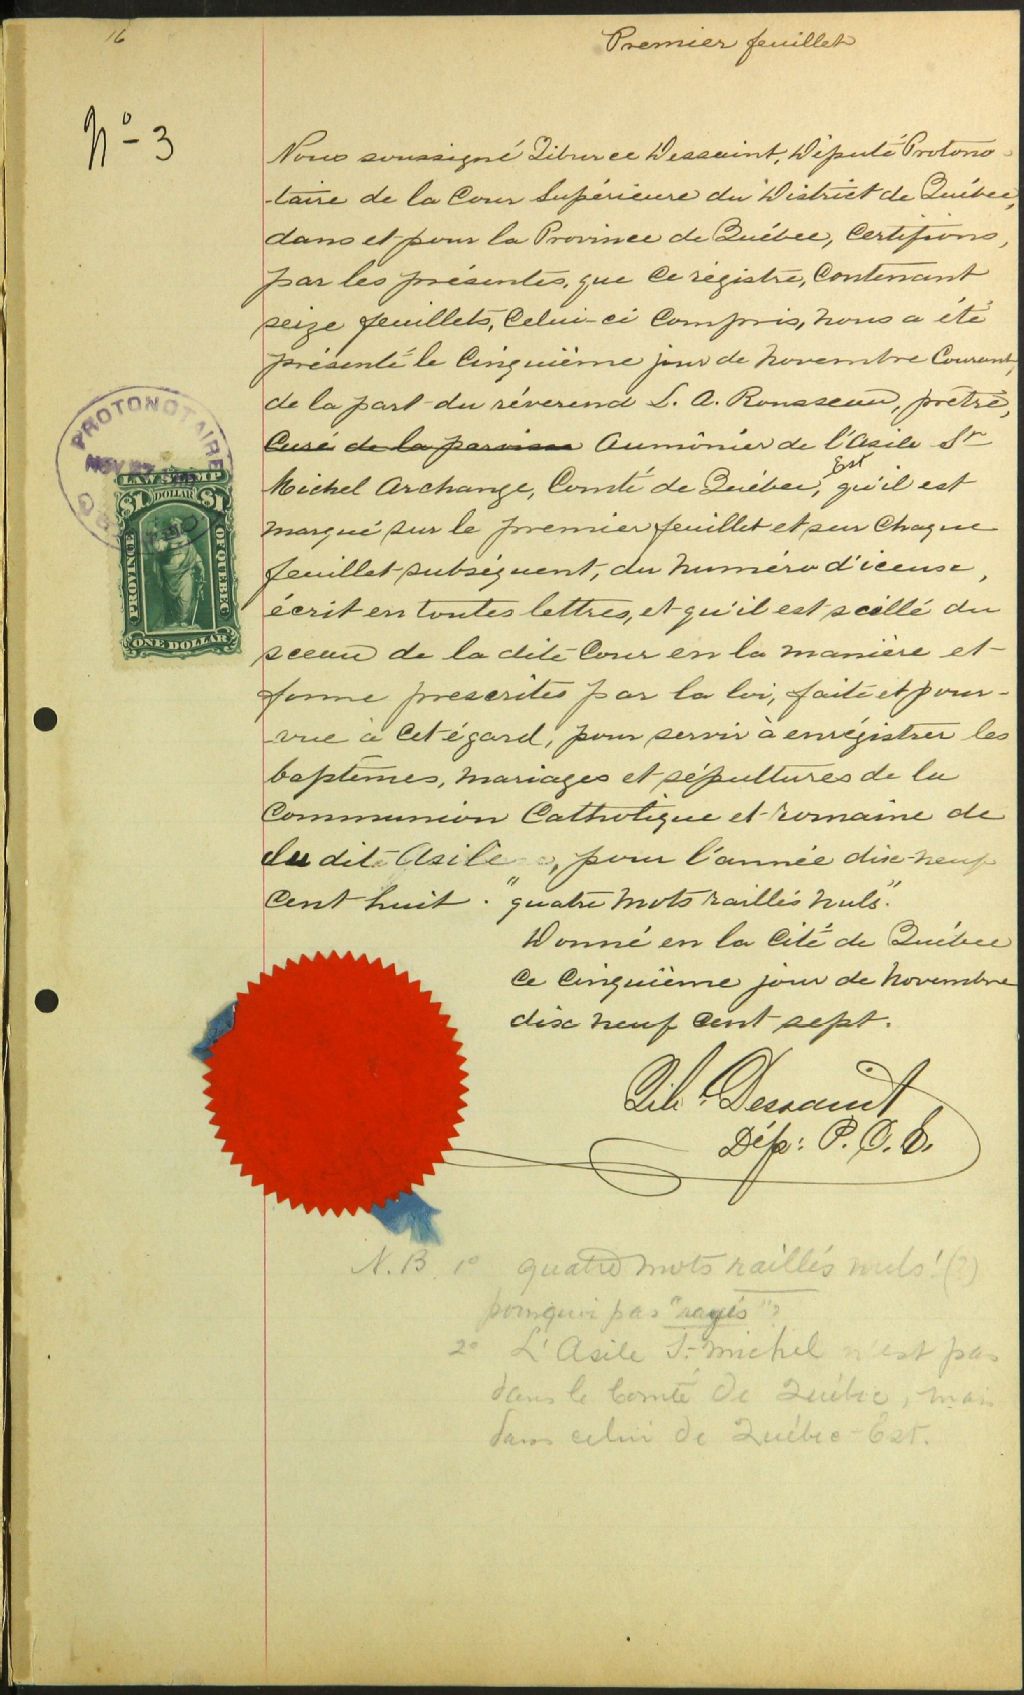 16
Premier feuillet
No 3
Nous soussigné Tiburce Dessaint, Député Protono-
-taire de la Cour Supérieure du District de Québec,
dans et pour la Province de Québec, Certifions,
par les présentes, que ce régistre, Contenant
seize feuillets, Celui-ci Compris, nous a été
présenté le Cinquième jour de Novembre Courant,
de la part du révérend L. A. Rousseau, prêtre,
Curé de la paroisse Aumônier de l'Asile St
Michel Archange, Comté de Québec, Est qu'il est
marqué sur le premier feuillet et sur Chaque
feuillet subséquent, du numéro d'iceux,
écrit en toutes lettres, et qu'il est scellé du
sceau de la dite Cour en la manière et
forme prescrites par la loi, faite et pour-
-vue à cet égard, pour servir à enrégistrer les
baptêmes, mariages et sépultures de la
Communion Catholique et romaine de
du dit Asile, pour l'année dix-neuf
cent huit. "quatre mots raillés nuls".
Donné en la Cité de Québec
ce Cinquième jour de Novembre
dix neuf cent sept.
Tib. Dessaint
Dép: P. C. S.
PROTONOTAIRE
NOV 27
LAW STAMP
$1 DOLLAR $1
PROVINCE
OF QUEBEC
ONE DOLLAR
N.B. 1o quatre mots raillés nuls! (?)
pourquoi pas "rayés"?
2o L'Asile St-Michel n'est pas
dans le Comté de Québec, mais
dans celui de Québec-Est.